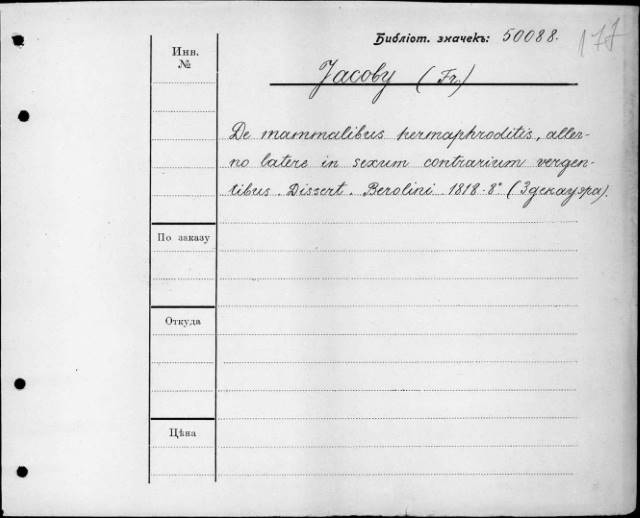 Библіот. значекъ: 50088. 177
Инв. №
Jacoby (Fr.)
De mammalibus hermaphroditis, alter-
no latere in sexum contrarium vergen-
tibus. Dissert. Berolini 1818-8° (3 декауэра).
По заказу
Откуда
Цѣна